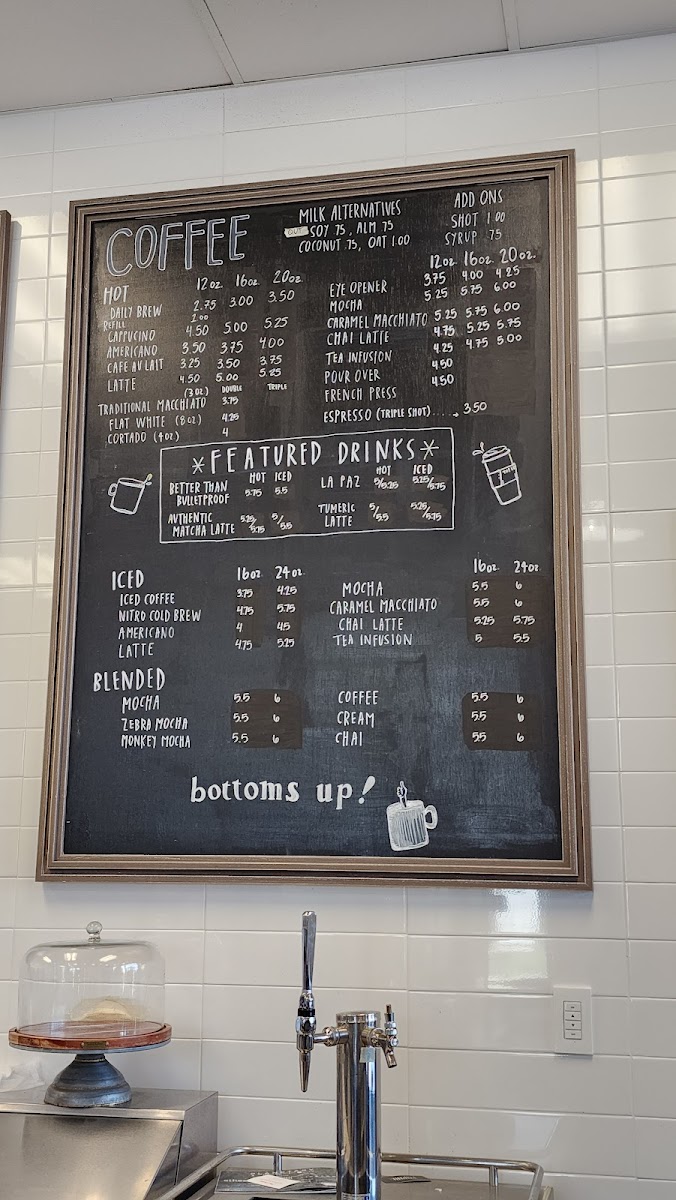 COFFEE
MILK ALTERNATIVES
OUT SOY 75, ALM 75
COCONUT .75, OAT 1.00
ADD ONS
SHOT 1 00
SYRUP 75
HOT 12oz. 16oz. 20oz.
DAILY BREW 2.75 3.00 3.50
REFILL 2.00
CAPPUCINO 4.50 5.00 5.25
AMERICANO 3.50 3.75 4.00
CAFE AV LAIT 3.25 3.50 3.75
LATTE 4.50 5.00 5.25
(3 OZ) DOUBLE TRIPLE
TRADITIONAL MACCHIATO 3.75
FLAT WHITE (8 OZ) 4.25
CORTADO (4OZ) 4
12oz. 16oz. 20oz.
EYE OPENER 3.75 4.00 4.25
MOCHA 5.25 5.75 6.00
CARAMEL MACCHIATO 5.25 5.75 6.00
CHAI LATTE 4.75 5.25 5.75
TEA INFUSION 4.25 4.75 5.00
POUR OVER 4.50
FRENCH PRESS 4.50
ESPRESSO (TRIPLE SHOT) .... 3.50
*FEATURED DRINKS*
HOT ICED
BETTER THAN BULLETPROOF 5.75 5.5
AUTHENTIC MATCHA LATTE 5.25/5.75 5/5.5
HOT ICED
LA PAZ 5/5.25 5.25/5.75
TUMERIC LATTE 5/5.5 5.25/5.75
ICED 16oz. 24oz.
ICED COFFEE 3.75 4.25
NITRO COLD BREW 4.75 5.75
AMERICANO 4 4.5
LATTE 4.75 5.25
16oz. 24oz.
MOCHA 5.5 6
CARAMEL MACCHIATO 5.5 6
CHAI LATTE 5.25 5.75
TEA INFUSION 5 5.5
BLENDED
MOCHA 5.5 6
ZEBRA MOCHA 5.5 6
MONKEY MOCHA 5.5 6
COFFEE 5.5 6
CREAM 5.5 6
CHAI 5.5 6
bottoms up!